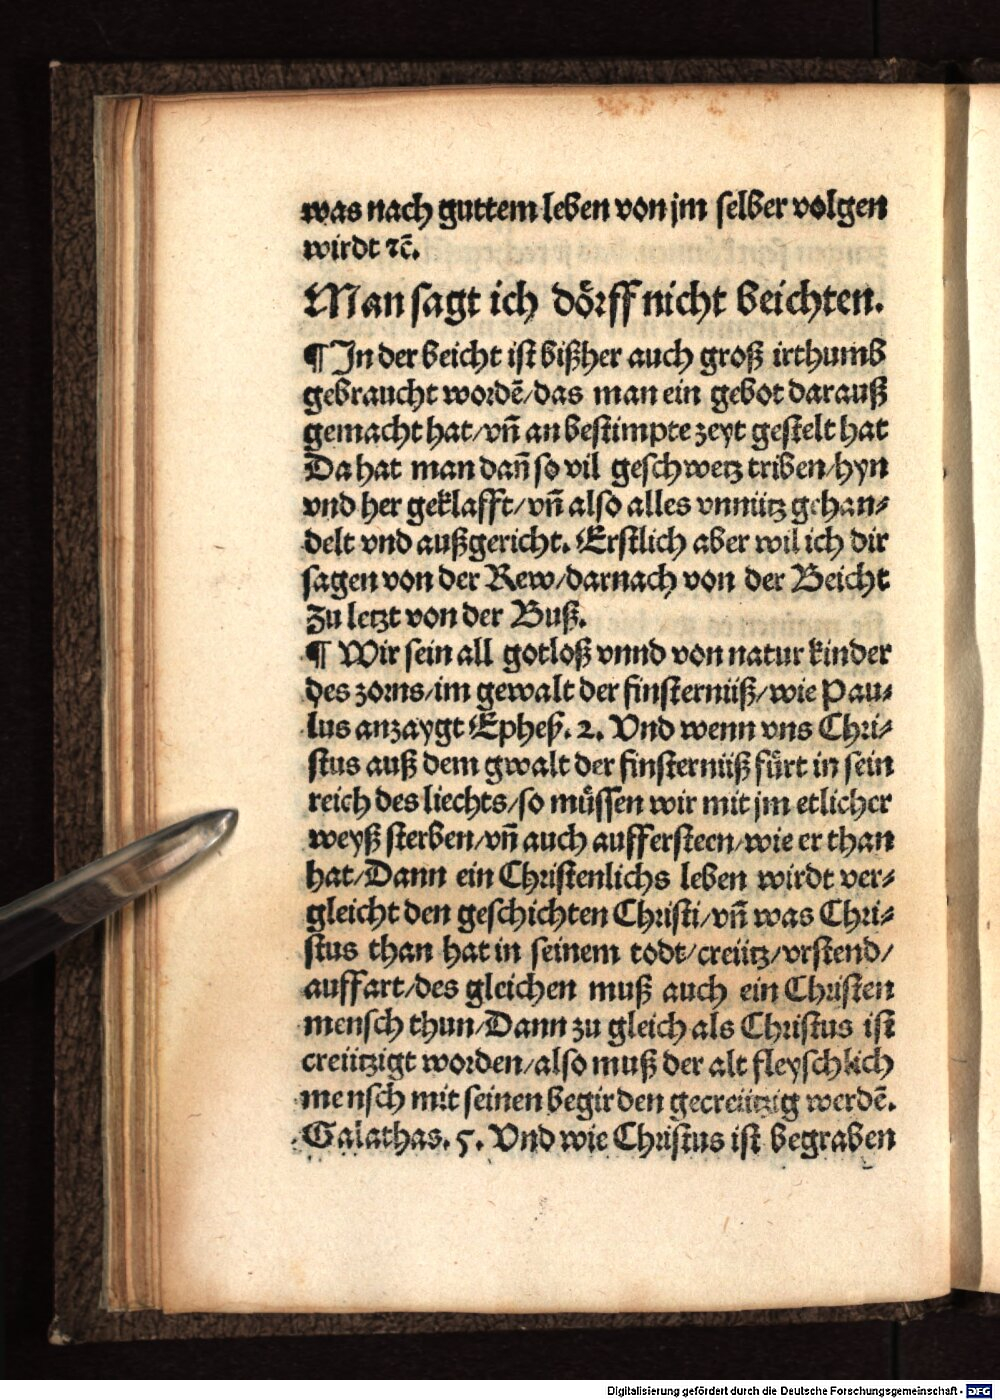 was nach guttem leben von jm selber volgen
wirdt ꝛc̃.
Man sagt ich dörff nicht beichten.
¶ In der beicht ist bißher auch groß irthumb
gebraucht wordẽ/das man ein gebot darauß
gemacht hat/vñ an bestimpte zeyt gestelt hat
Da hat man dañ so vil geschwetz triben/hyn
vnd her geklafft/vñ also alles vnnütz gehan⸗
delt vnd außgericht. Erstlich aber wil ich dir
sagen von der Rew/darnach von der Beicht
Zu letzt von der Buß.
¶ Wir sein all gotloß vnnd von natur kinder
des zorns/im gewalt der finsternüß/wie Pau⸗
lus anzaygt Ephes. 2. Vnd wenn vns Chri⸗
stus auß dem gwalt der finsternüß fürt in sein
reich des liechts/so müssen wir mit jm etlicher
weyß sterben/vñ auch auffersteen/wie er than
hat/Dann ein Christenlichs leben wirdt ver⸗
gleicht den geschichten Christi/vñ was Chri⸗
stus than hat in seinem todt/creütz/vrstend/
auffart/des gleichen muß auch ein Christen
mensch thun/Dann zu gleich als Christus ist
creützigt worden/also muß der alt fleyschlich
mensch mit seinen begirden gecreützig werdẽ.
Galathas. 5. Vnd wie Christus ist begraben
Digitalisierung gefördert durch die Deutsche Forschungsgemeinschaft - DFG